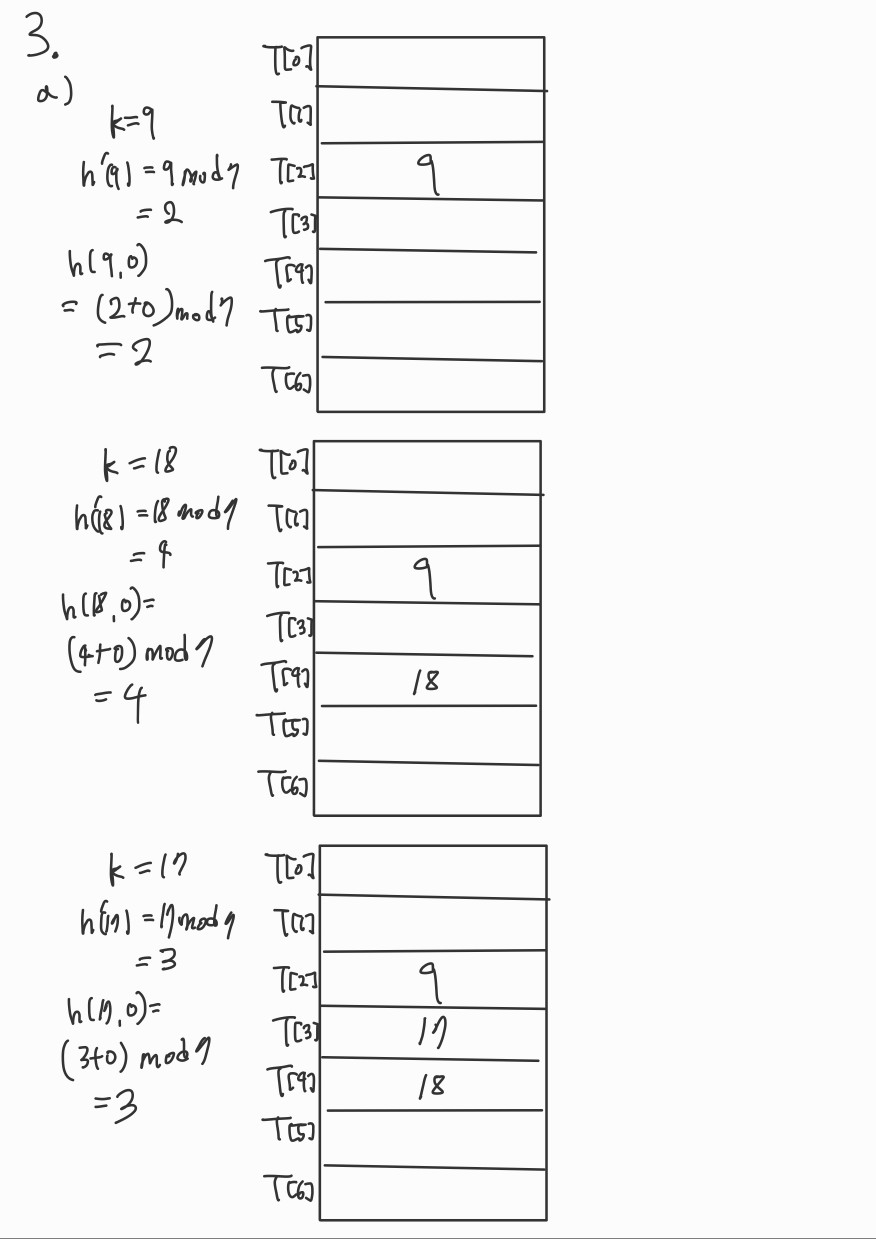 3.
a)
k=9
h'(9) = 9 mod 7
= 2
h(9,0)
= (2+0) mod 7
= 2
T[0]
T[1]
T[2] 9
T[3]
T[4]
T[5]
T[6]
k = 18
h'(18) = 18 mod 7
= 4
h(18,0)=
(4+0) mod 7
= 4
T[0]
T[1]
T[2] 9
T[3]
T[4] 18
T[5]
T[6]
k = 17
h'(17) = 17 mod 7
= 3
h(17,0)=
(3+0) mod 7
=3
T[0]
T[1]
T[2] 9
T[3] 17
T[4] 18
T[5]
T[6]